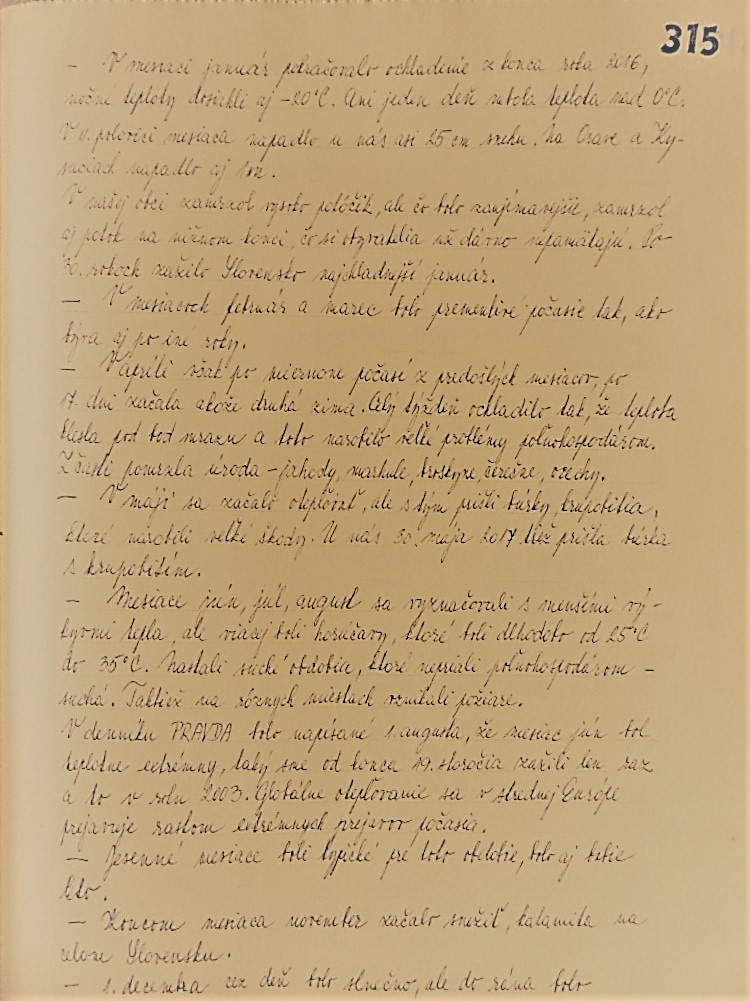 315
– V mesiaci január pokračovalo ochladenie z konca roka 2016,
nočné teploty dosiahli aj -20°C. Ani jeden deň nebola teplota nad 0°C.
V polovici mesiaca napadlo u nás asi 25 cm snehu. Na Orave a Ky-
suciach napadlo aj 1m.
V našej obci zamrzol vysoko potôčik, ale čo bolo zaujímavejšie, zamrzol
aj potok na nižnom konci, čo si obyvatelia už dávno nepamätajú. Po
30. rokoch zažilo Slovensko najchladnejší január.
– V mesiacoch február a marec bolo premenlivé počasie tak, ako
býva aj po iné roky.
– V apríli však po miernom počasí z predošlých mesiacov, po
17. dni začala akože druhá zima. Celý týždeň ochladilo tak, že teplota
klesla pod bod mrazu a toto narobilo veľké problémy poľnohospodárom.
Z časti pomrzla úroda – jahody, marhule, broskyne, čerešne, orechy.
– V máji sa začalo otepľovať, ale s tým prišli búrky, krupobitia,
ktoré narobili veľké škody. U nás 30. mája 2017 tiež prišla búrka
s krupobitím.
– Mesiace jún, júl, august sa vyznačovali s menšími vý-
kyvmi tepla, ale viacej boli horúčavy, ktoré boli dlhodobo od 25°C
do 35°C. Nastali suché obdobia, ktoré nepriali poľnohospodárom –
suchá. Taktiež na rôznych miestach vznikali požiare.
V denníku PRAVDA bolo napísané 1. augusta, že mesiac jún bol
teplotne extrémny, taký sme od konca 19. storočia zažili len raz
a to v roku 2003. Globálne otepľovanie sa v strednej Európe
prejavuje rastom extrémnych prejavov počasia.
– Jesenné mesiace boli typické pre toto obdobie, bolo aj babie
leto.
– Koncom mesiaca november začalo snežiť, kalamita na
celom Slovensku.
– 1. decembra cez deň bolo slnečno, ale do rána bolo